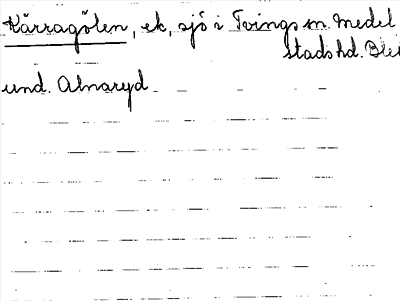 Kärragölen, ek, sjö i Tvings sn. Medel
stads hd. Blek
und. Alnaryd